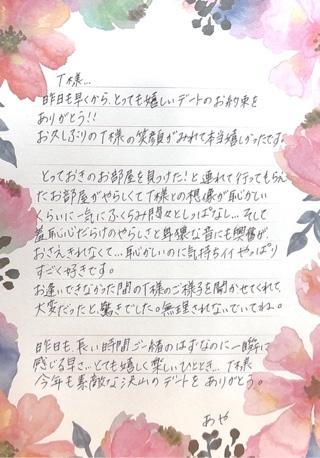 T様...
昨日も早くから、とっても嬉しいデートのお約束を
ありがとう!!
お久しぶりのT様の笑顔がみれて本当嬉しかったです。
とっておきのお部屋を見つけた!と連れて行ってもらえ
たお部屋がやらしくてT様との想像が恥かしい
くらいに一気にふくらみ悶々としっぱなし...そして
羞恥心だらけのやらしさと卑猥な音にも興奮が、
おさえきれなくて...恥かしいのに気持ちイイやっぱり
すごく好きです。
お逢いできなかった間のT様のご様子を聞かせてくれて、
大変だったと、驚きでした。無理されないでいてね。
昨日も、長い時間ご一緒のはずなのに一瞬に
感じる早さ...とても嬉しく楽しいひととき...T様
今年も素敵な沢山のデートをありがとう。
あや